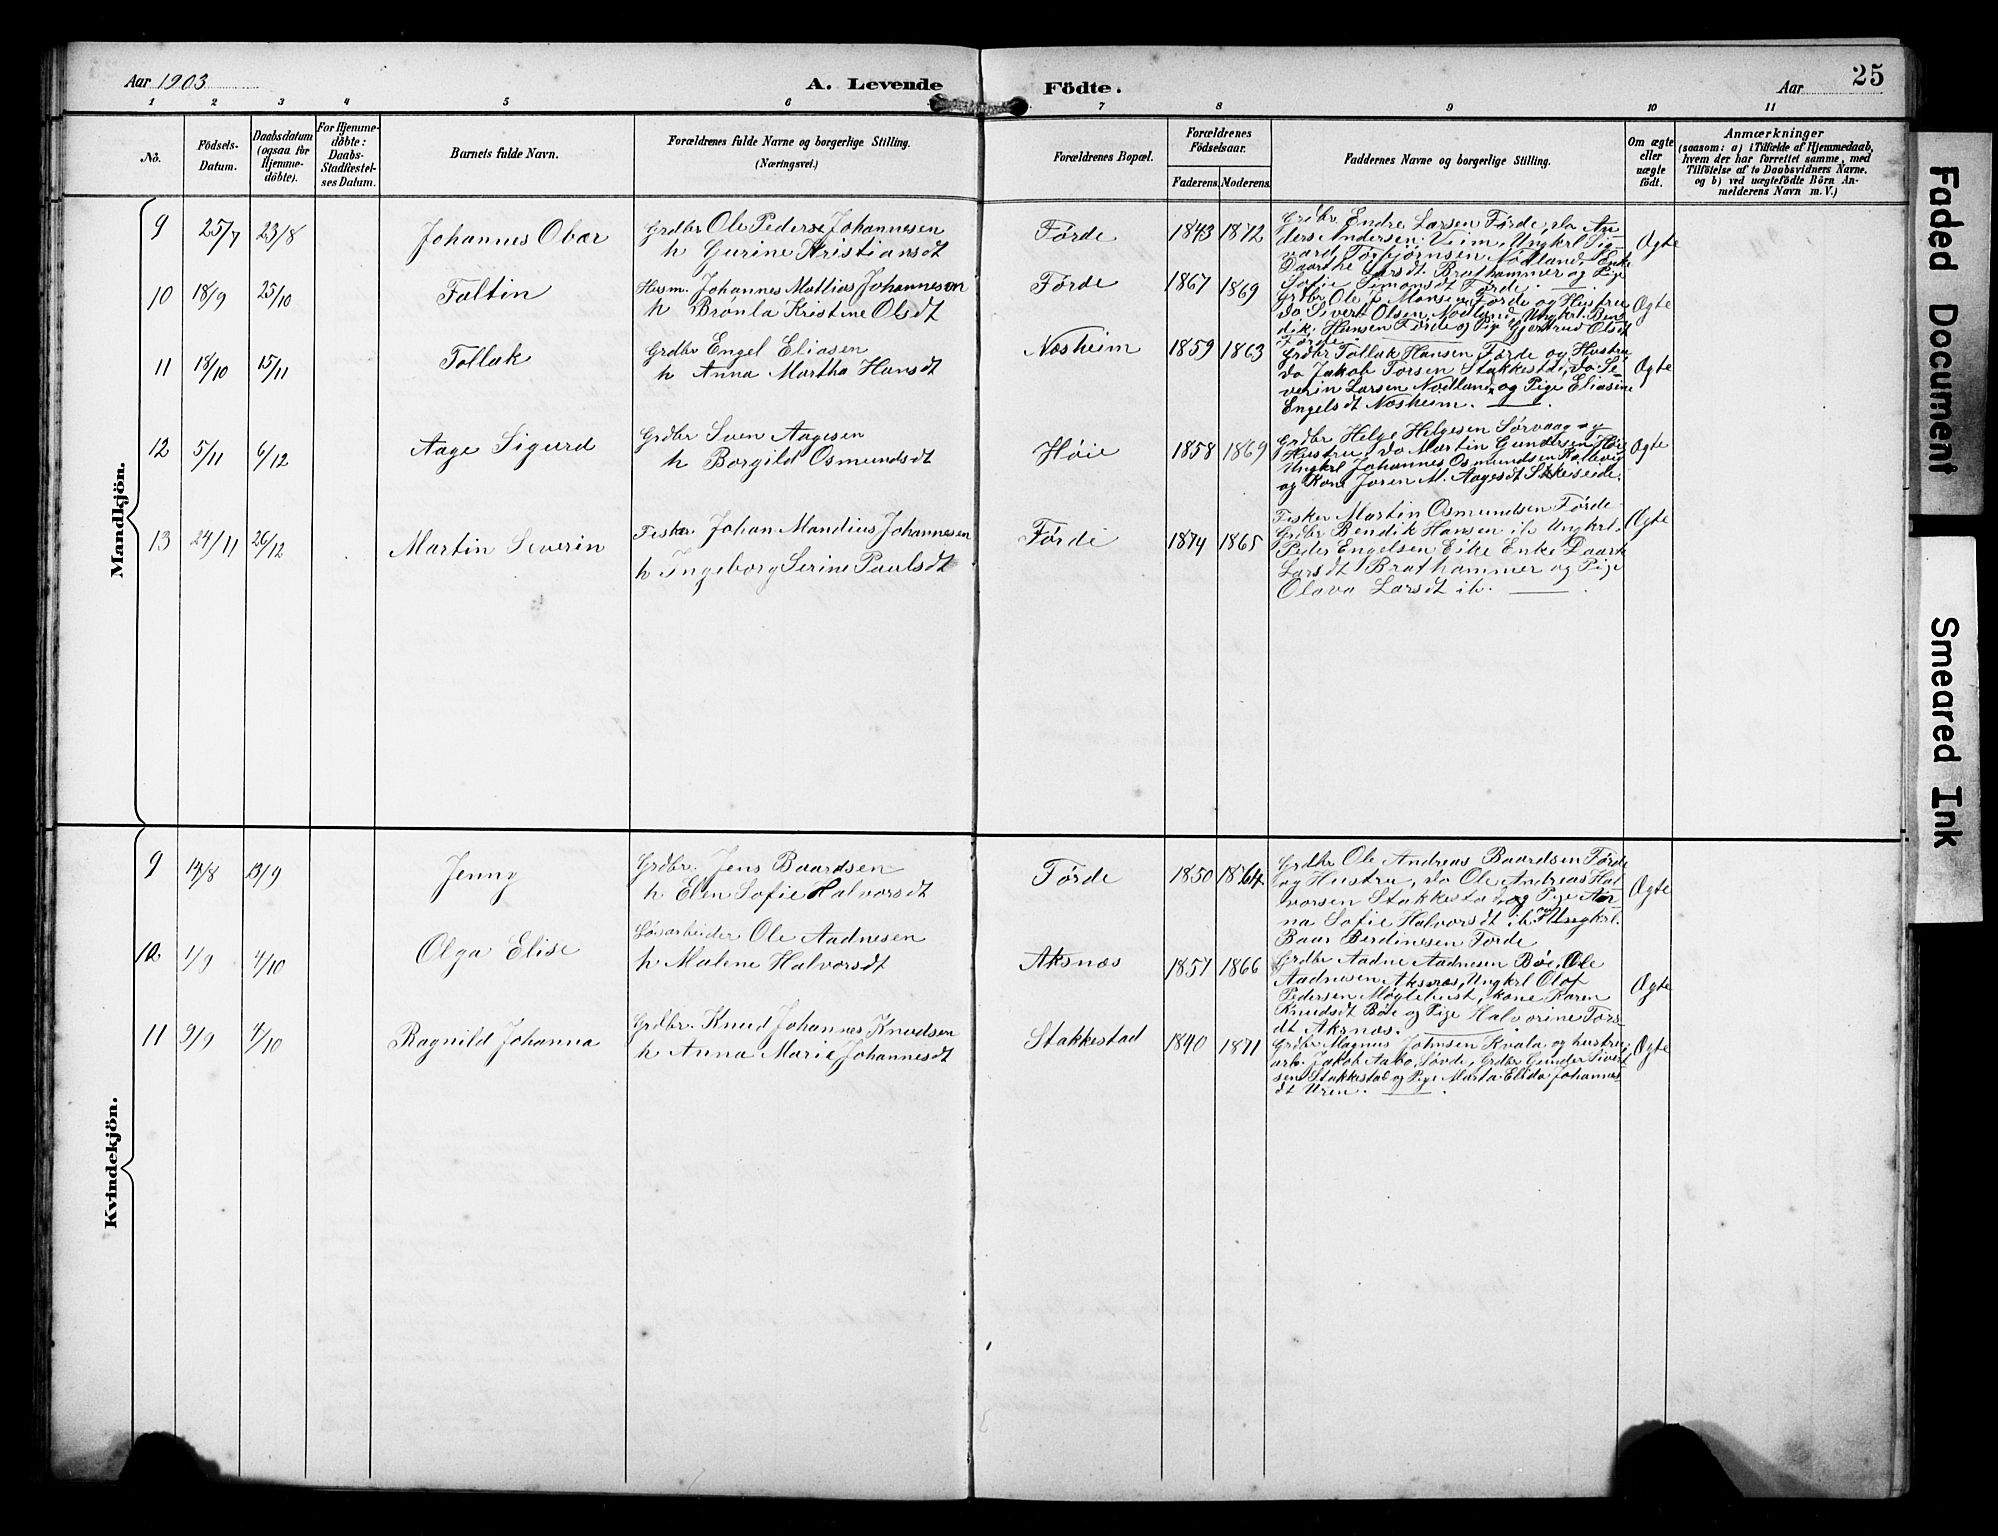 Aar 1903
A. Levende Födte.
Aar 25
1 2 3 4 5 6 7 8 9 10 11
No.
Födsels-Datum.
Daabsdatum (ogsaa for Hjemmedöbte).
For Hjemmedöbte: Daabs-Stadfæstelses Datum.
Barnets fulde Navn.
Forældrenes fulde Navne og borgerlige Stilling.
(Næringsvei.)
Forældrenes Bopæl.
Forældrenes Födselsaar.
Faderens. Moderens.
Faddernes Navne og borgerlige Stilling.
Om ægte eller uægte födt.
Anmærkninger
(saasom: a) i Tilfælde af Hjemmedaab,
hvem der har forrettet samme, med
Tilföielse af to Daabsvidners Navne.
og b) ved uægtefödte Börn An-
melderens Navn m. V.)
Mandkjön.
9 25/7 23/8 Johannes Obar
Grdbr Ole Peder Johannesen
h Gurine Kristiansdt
Førde 1843 1872
Grdbr Endre Larsen Førde, do An-
ders Andersen Veim, Ungkrl Sig-
vard Torbjørnsen Nodland, Enke
Daarthe Larsdt Brathammer og Pige
Sofie Simonsdt Førde.
Ægte
10 18/9 25/10 Faltin
Husm. Johannes Mathias Johannesen
h Brønla Kristine Olsdt
Førde 1867 1869
Grdbr Ole J. Monsen Førde og Hustru
do Sivert Olsen Nodland, Ungkrl. Ben-
dik Hansen Førde og Pige Gjertrud Olsdt
Førde.
Ægte
11 18/10 15/11 Tollak
Grdbr Engel Eliasen
h Anna Martha Hansdt
Næsheim 1859 1863
Grdbr Tollak Hansen Førde og Hustru
do Jakob Torsen Stakkestd, do Se-
verin Larsen Nodland og Pige Eliasine
Engelsdt Næsheim.
Ægte
12 5/11 6/12 Aage Sigurd
Grdbr Sven Aagesen
h Borgild Osmundsdt
Høie 1858 1869
Grdbr Helge Helgesen Sørvaag og
Hustru, do Martin Gundersen Høie
Ungkrl Johannes Osmundsen
og Kone Joren M. Aagesdt
Ægte
13 24/11 26/12 Martin Severin
Fisker Johan Mandius Johannesen
h Ingeborg Serine Paulsdt
Førde 1874 1865
Fisker Martin Osmundsen Førde
Grdbr Bendik Hansen ib. Ungkrl.
Peder Engelsen Eike Enke Daart
Larsdt Brathammer og Pige
Olava Larsdt ib.
Ægte
Kvindekjön.
9 14/8 13/9 Jenny
Grdbr. Jens Baardsen
h Elen Sofie Halvorsdt
Førde 1850 1864
Grdbr Ole Andreas Baardsen Førde
og Hustru, do Ole Andreas Hal-
vorsen Stakkestad og Pige An-
na Sofie Halvorsdt ib og Ungkrl.
Baar Berdinesen Førde
Ægte
10 1/9 4/10 Olga Elise
Løsarbeider Ole Aadnesen
h Malene Halvorsdt
Aksnæs 1857 1866
Grdbr Aadne Aadnesen Bøe, Ole
Aadnesen Aksnæs, Ungkrl Olaf
Pedersen Møgletvest, kone Karen
Knudsdt Bøe og Pige Halvorine Tors-
dt Aksnæs.
Ægte
11 9/9 4/10 Ragnild Johanna
Grdbr. Knud Johannes Knudsen
h Anna Marie Johannesdt
Stakkestad 1840 1871
Grdbr Magnus Johnsen Kvala og hustru,
arb. Jakob Aabo, Søvde, Grdbr Gunder Sivert-
sen Stakkestad og Pige Marta Elida Johannes-
dt Uren.
Ægte
Faded Document
Smeared Ink